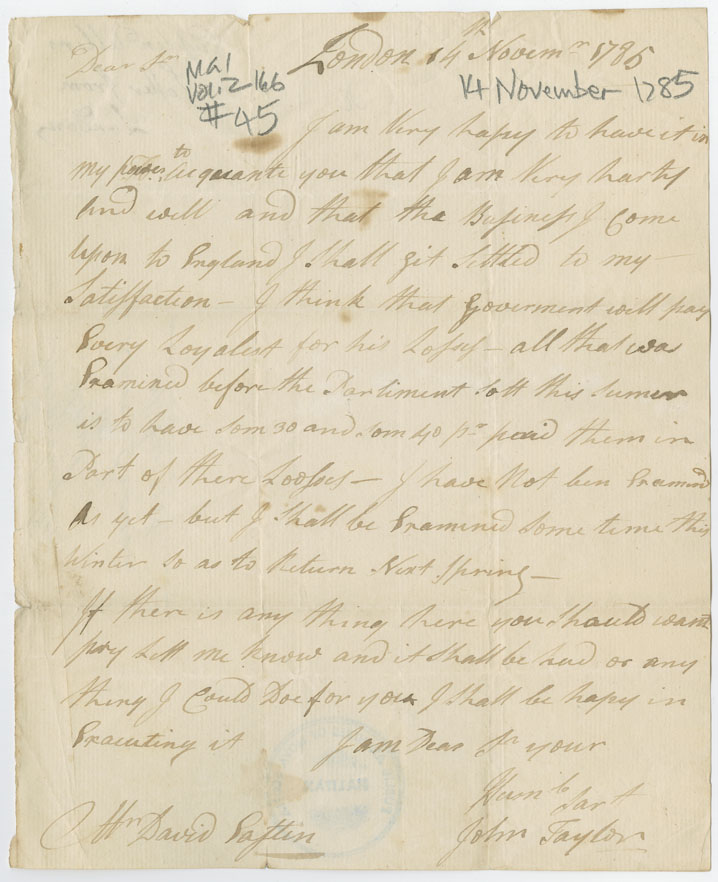 London 14th Novemr 1785
Dear Sr
MG1
Vol. 2166
#45
14 November 1785
I am Very hapy to have it in
my power to acquante you that I am Very harty
And well and that the Business I Come
Upon to England I Shall git Settled to my
Satisfaction - I think that Goverment will pay
Every Loyalest for his Losses - all that was
Examined before the Parliment Sott this Sumer
is to have Som 30 and Som 40 pr paid them in
Part of there Loosses - I have Not ben Examend
As yet - but I Shall be Examined Some time this
Winter So as to Return Next Spring -
If there is any thing here you Should want
pry Lett me know and it Shall be had or any
thing I Could Doe for you I Shall be hapy in
Executing it I am Dear Sr your
Humbe Sart
Mr David John Taylor